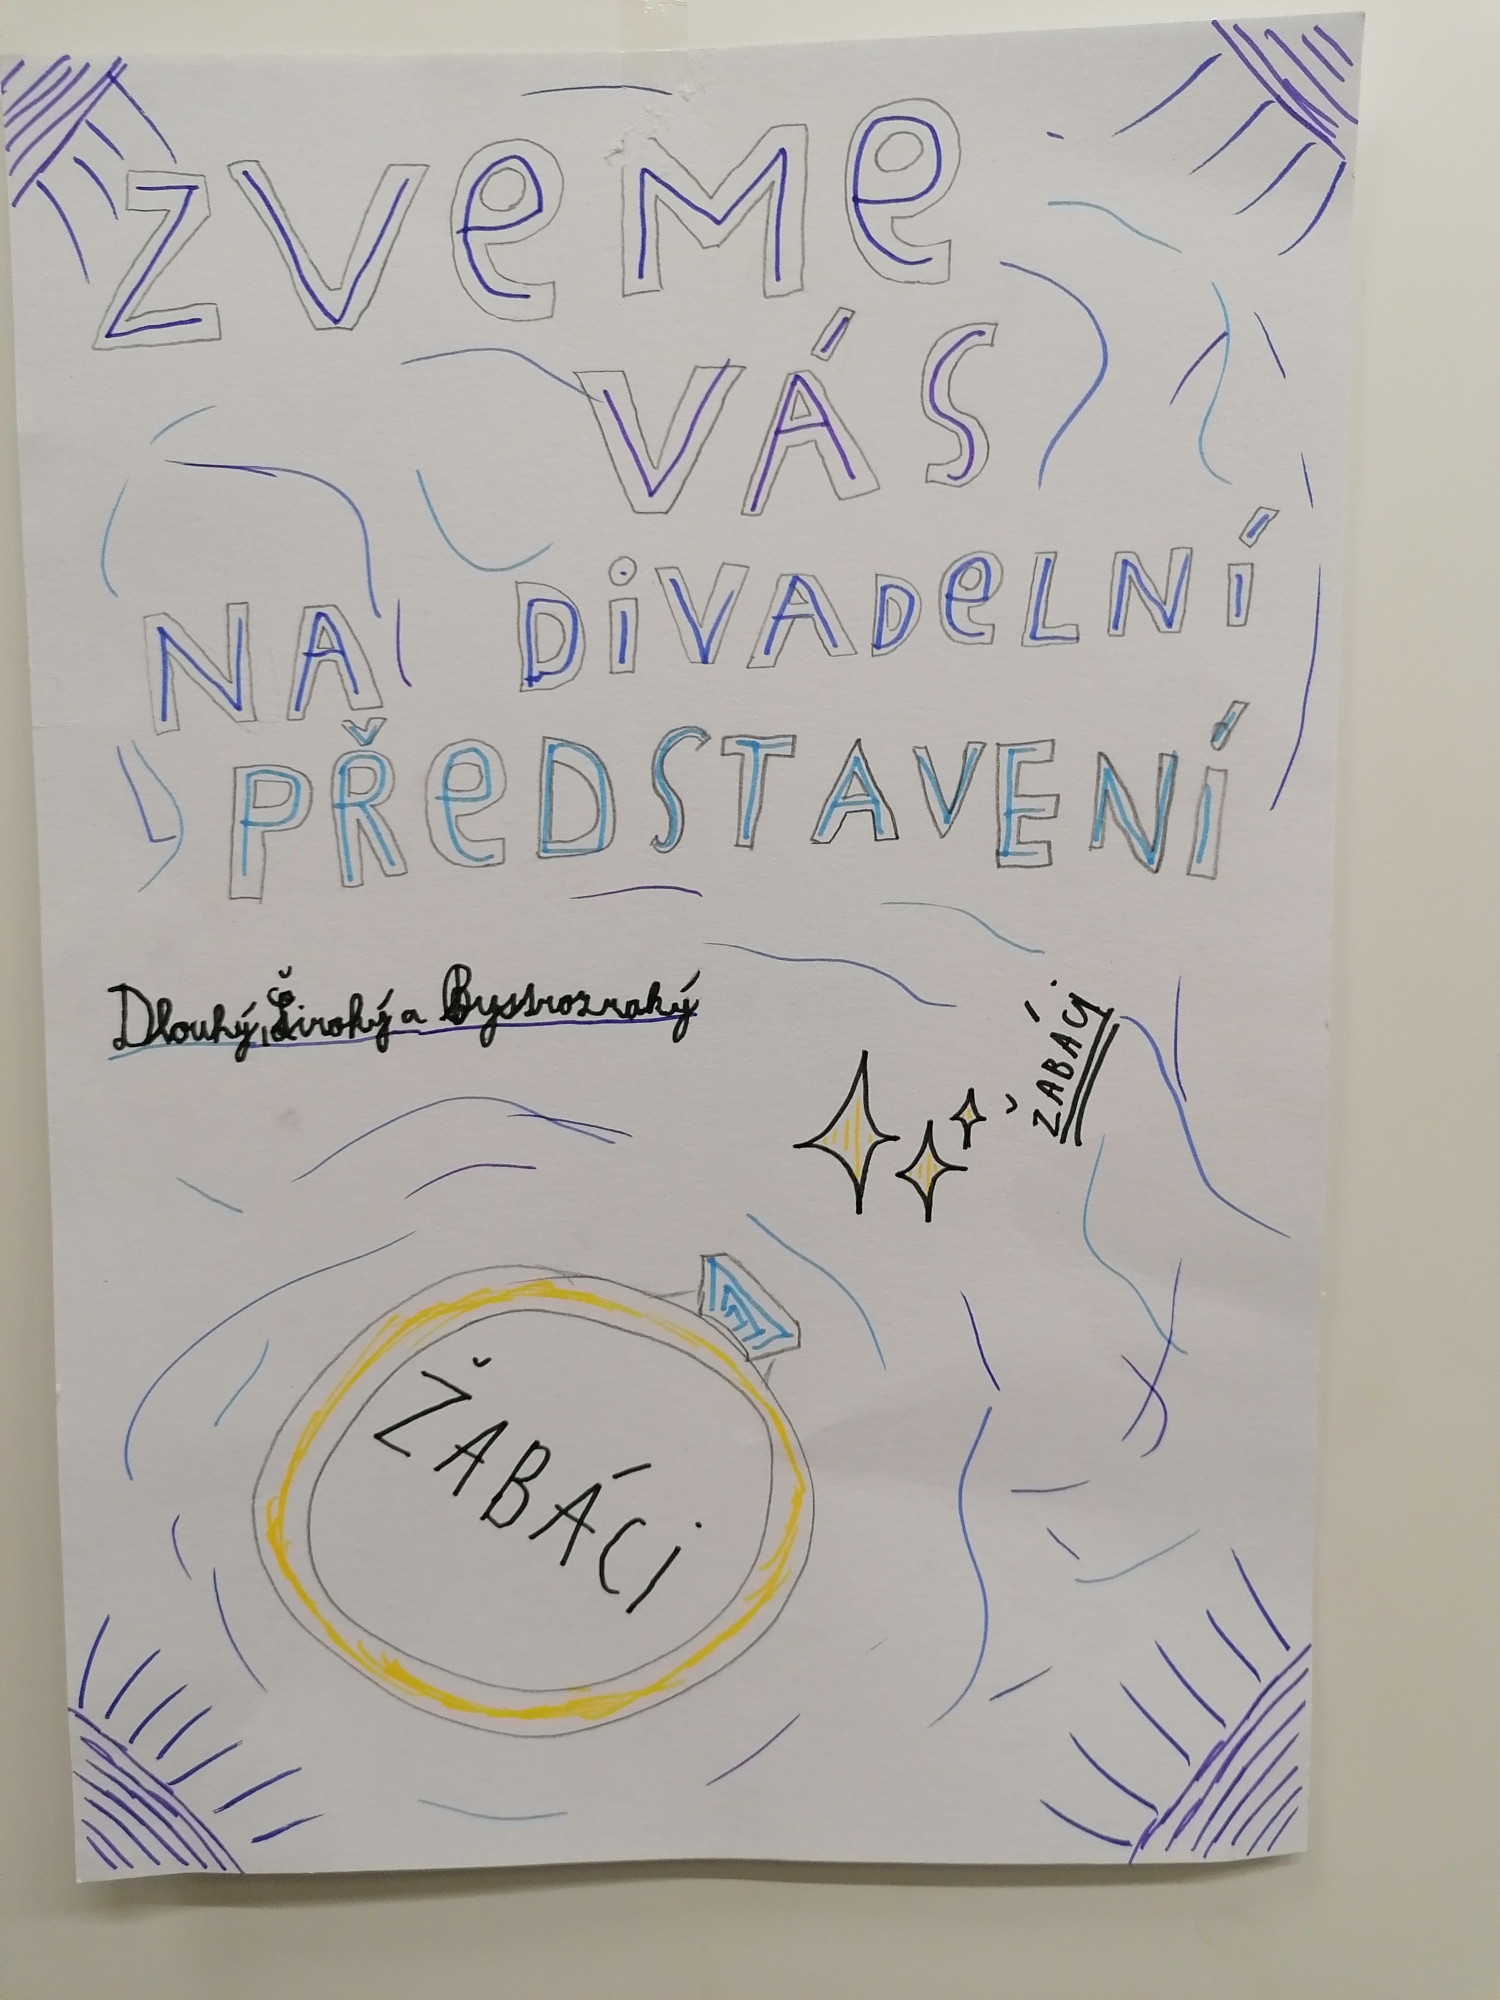 ZVeMe
VÁS
NA DiVADeLNÍ
PŘeDSTAVENÍ
Dlouhý, Široký a Bystrozraký
ŽABÁCi
ŽABÁCi